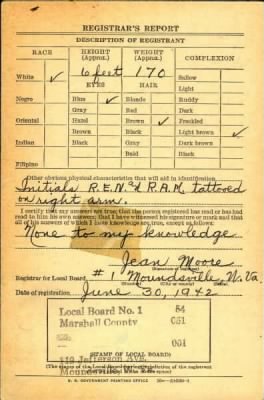 REGISTRAR'S REPORT
DESCRIPTION OF REGISTRANT
RACE HEIGHT (Approx.) WEIGHT (Approx.) COMPLEXION
White ✓ 6 feet 170 Sallow
EYES HAIR Light
Negro Blue ✓ Blonde Ruddy
Gray Red Dark
Oriental Hazel Brown ✓ Freckled
Brown Black Light brown ✓
Indian Black Gray Dark brown
Bald Black
Filipino
Other obvious physical characteristics that will aid in identification
Initials R.E.N. & R.A.M. tattoed
on right arm.
I certify that my answers are true; that the person registered has read or has had
read to him his own answers; that I have witnessed his signature or mark and that
all of his answers of which I have knowledge are true, except as follows:
None to my knowledge
Jean Moore
Registrar for Local Board #1 Moundsville, W. Va.
Date of registration June 30, 1942
Local Board No. 1 54
Marshall County 051
001
119 Jefferson Ave.
(STAMP OF LOCAL BOARD)
U. S. GOVERNMENT PRINTING OFFICE